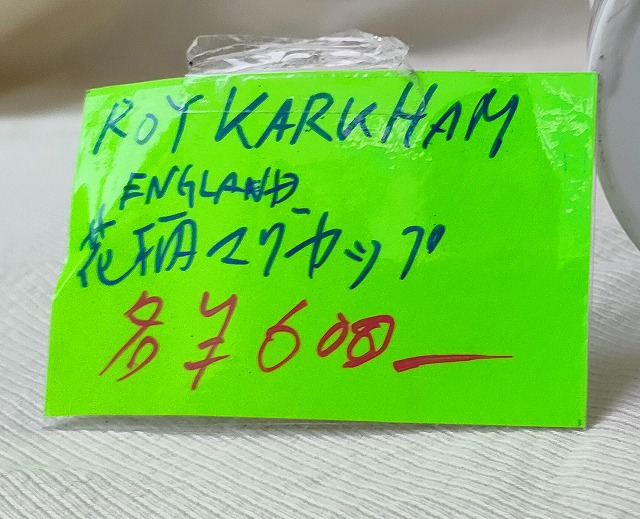 ROY KARKHAM
ENGLAND
花柄マグカップ
各¥600